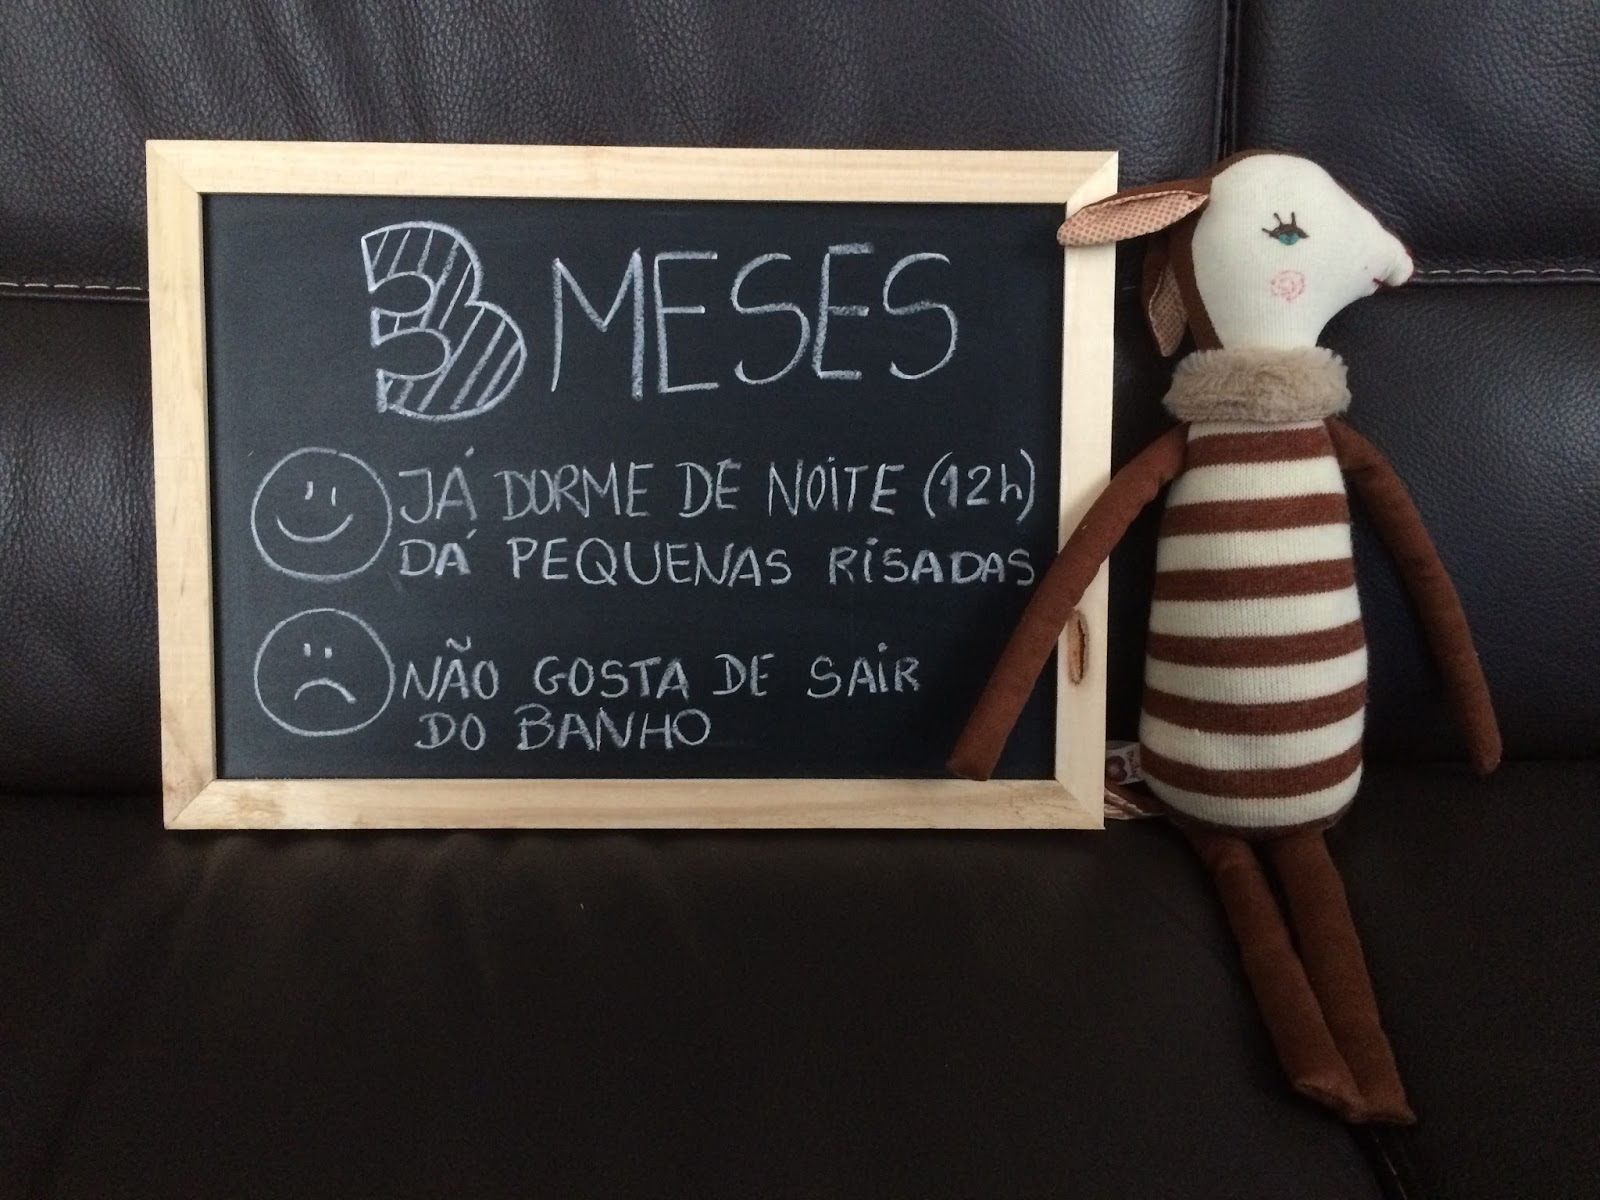 3 MESES
JÁ DORME DE NOITE (12h)
DÁ PEQUENAS RISADAS
NÃO GOSTA DE SAIR
DO BANHO